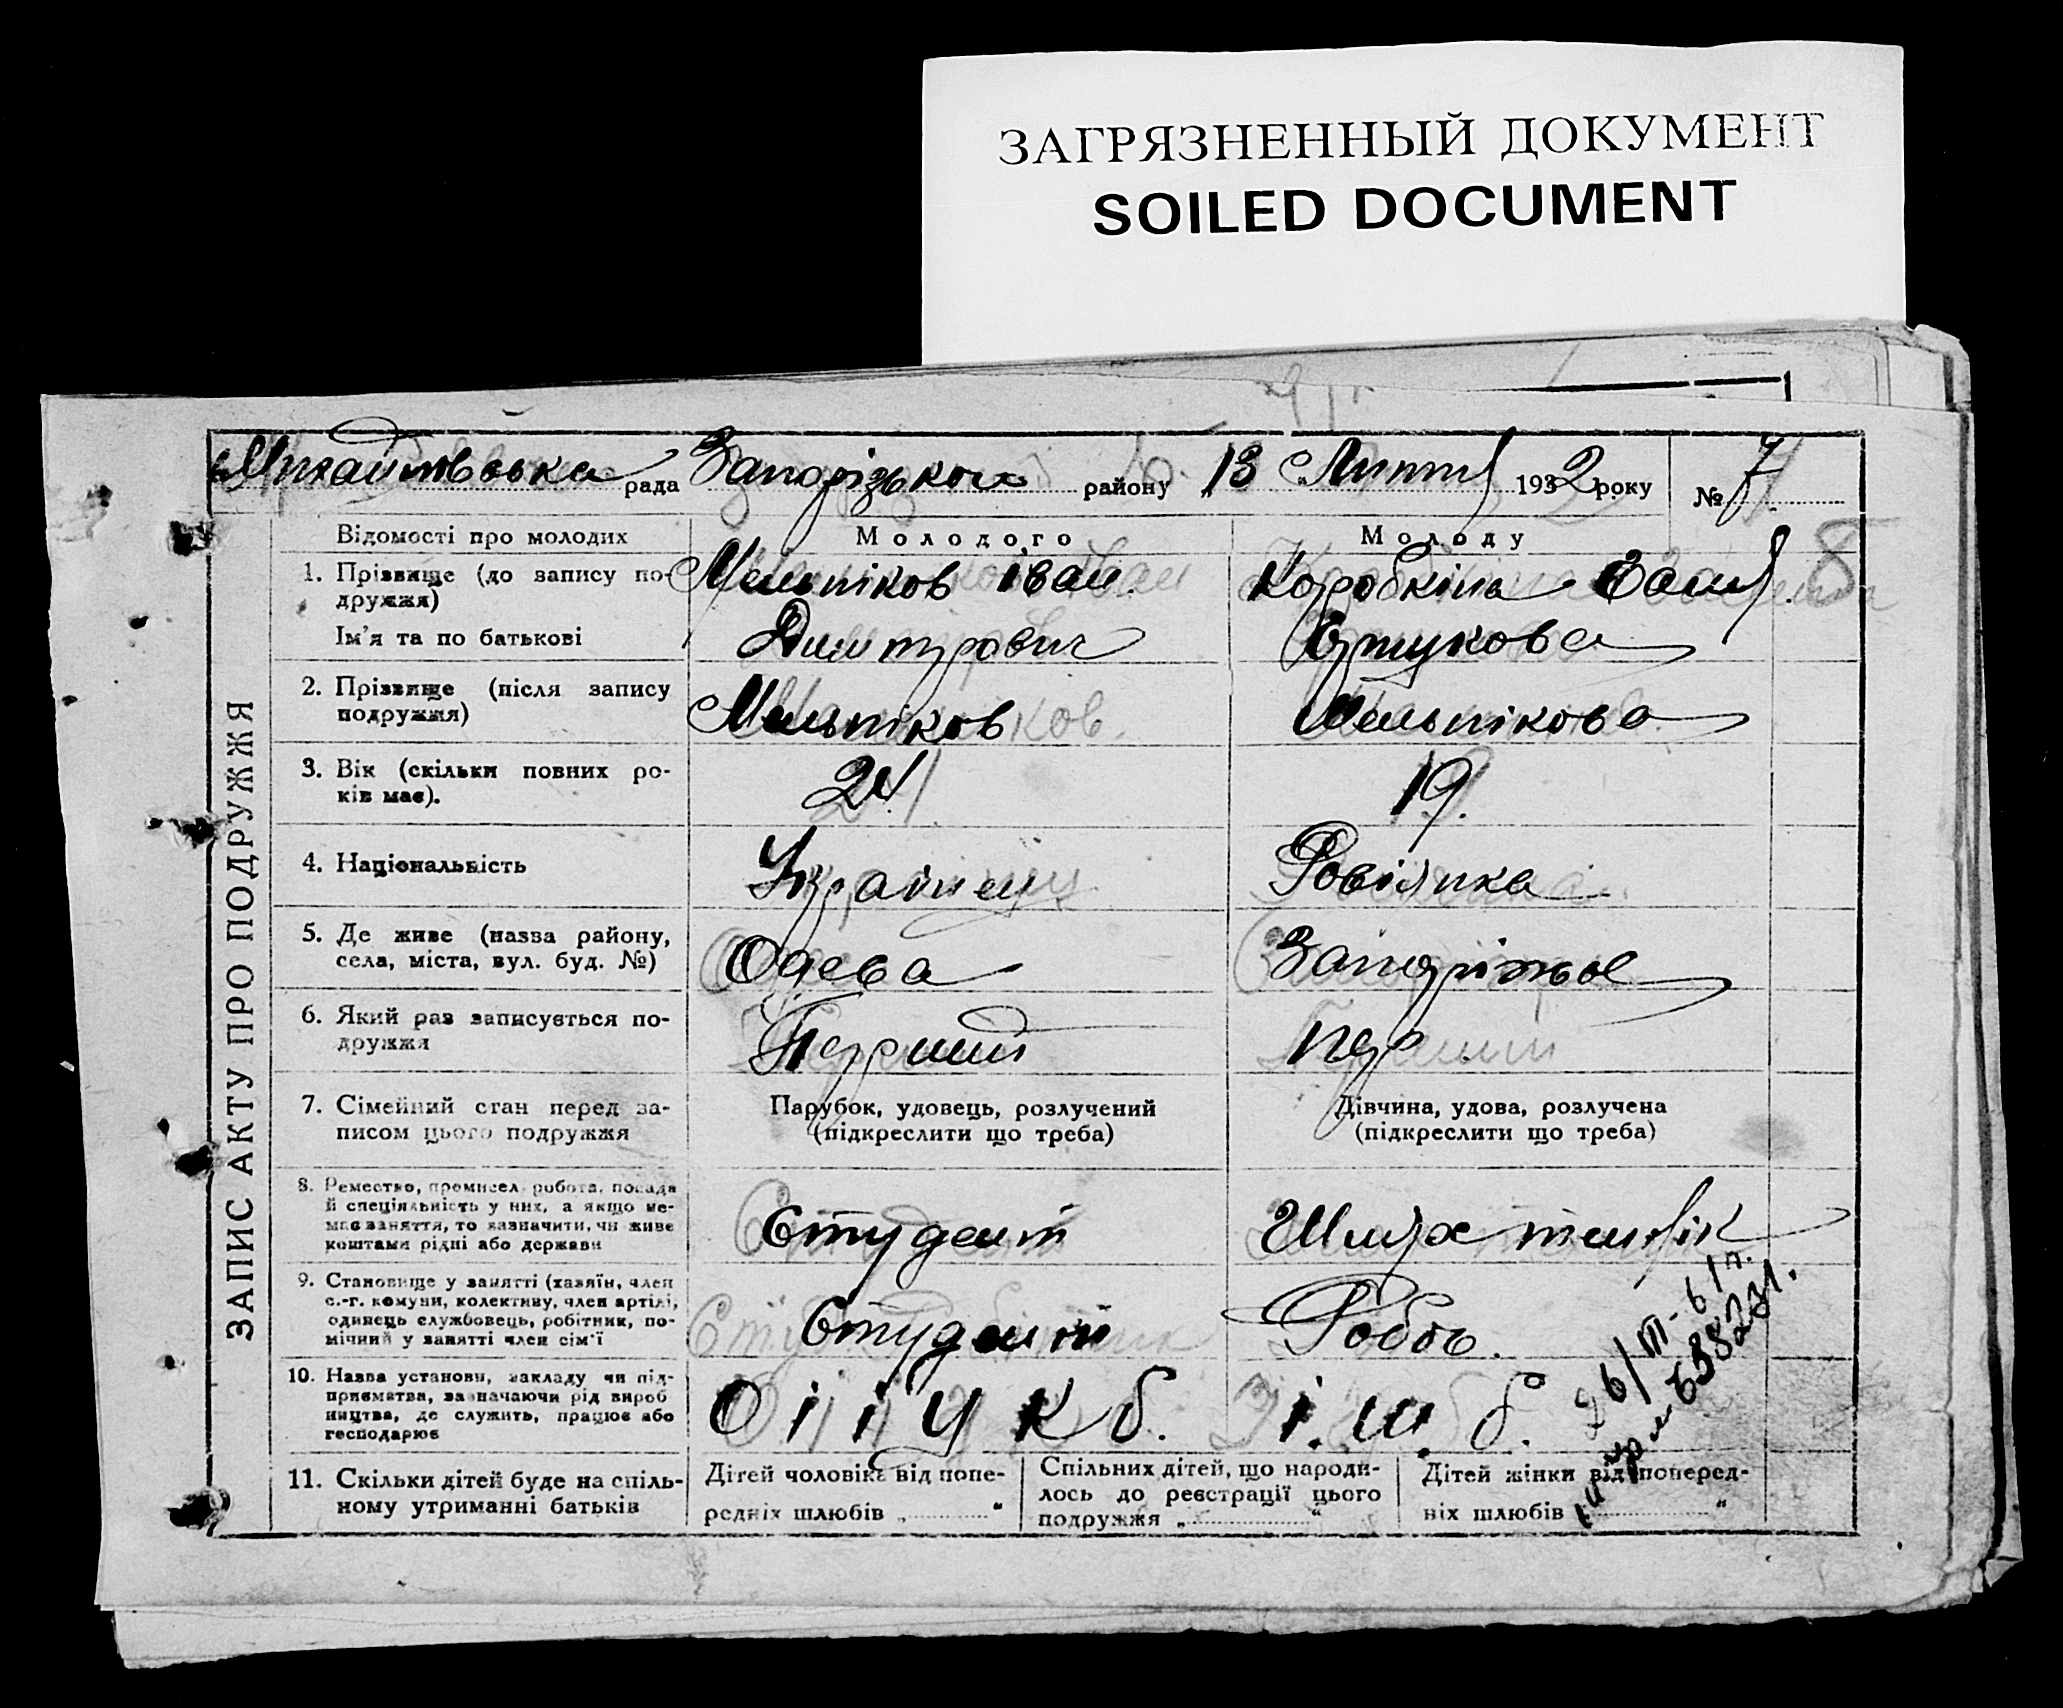 ЗАГРЯЗНЕННЫЙ ДОКУМЕНТ
SOILED DOCUMENT
Михайлівська рада Запорізького району 13 Лютня 1932 року № 7
ЗАПИС АКТУ ПРО ПОДРУЖЖЯ
Відомості про молодих
Молодого
Молоду
8
1. Прізвище (до запису по-
дружжя)
Ім'я та по батькові
Мельніков Іван
Димтрович
Коробкіна
2. Прізвище (після запису
подружжя)
Мельніков
Мельнікова
3. Вік (скільки повних ро-
ків має).
24
19.
4. Національність
Українець
5. Де живе (назва району,
села, міста, вул. буд. №)
Одеса
Запоріжье
6. Який раз записується по-
дружжя
Перший
пер
7. Сімейний стан перед за-
писом цього подружжя
Парубок, удовець, розлучений
(підкреслити що треба)
Дівчина, удова, розлучена
(підкреслити що треба)
8. Ремество, промисел, робота, посада
й спеціяльність у них, а якщо не-
має заняття, то зазначити, чи живе
коштами рідні або держави
Студент
9. Становище у занятті (хазяїн, член
с.-г. комуни, колективу, член артілі,
одинець службовець, робітник, по-
мічний у занятті член сім'ї
Студент
Робоч.
10. Назва установи, закладу чи під-
приємства, зазначаючи рід вироб
ництва, де служить, працює або
господарює
О і і у к б.
і. ш. б.
11. Скільки дітей буде на спіль-
ному утриманні батьків
Дітей чоловіка від попе-
редніх шлюбів „ “
Спільних дітей, що народи-
лось до реєстрації цього
подружжя „ “
Дітей жінки від поперед-
ніх шлюбів „ “